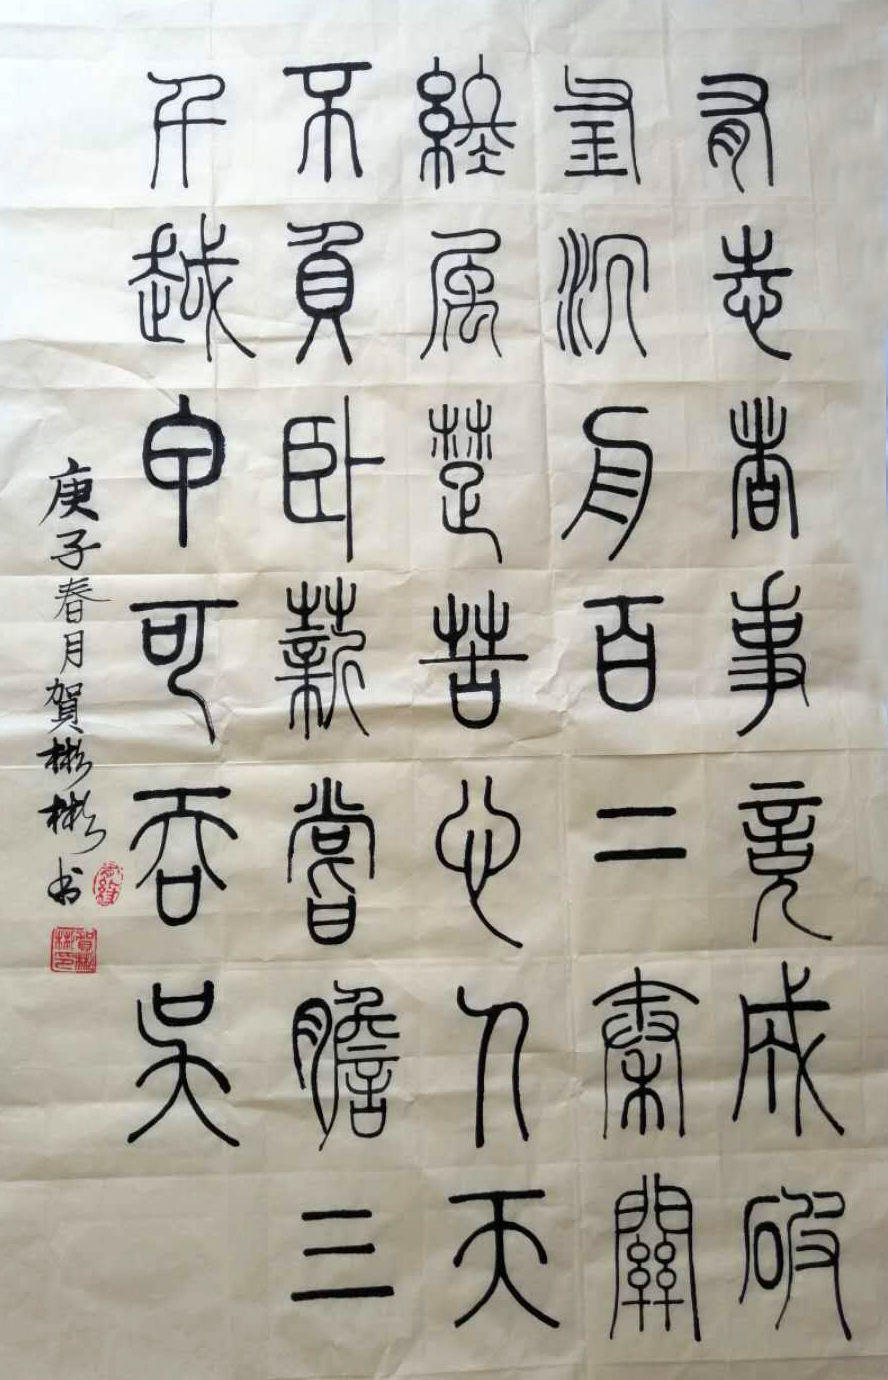 有志者事竟成破
釜沉舟百二秦關
終屬楚苦心人天
不負卧薪嘗膽三
千越甲可吞吳
庚子春月賀彬彬书